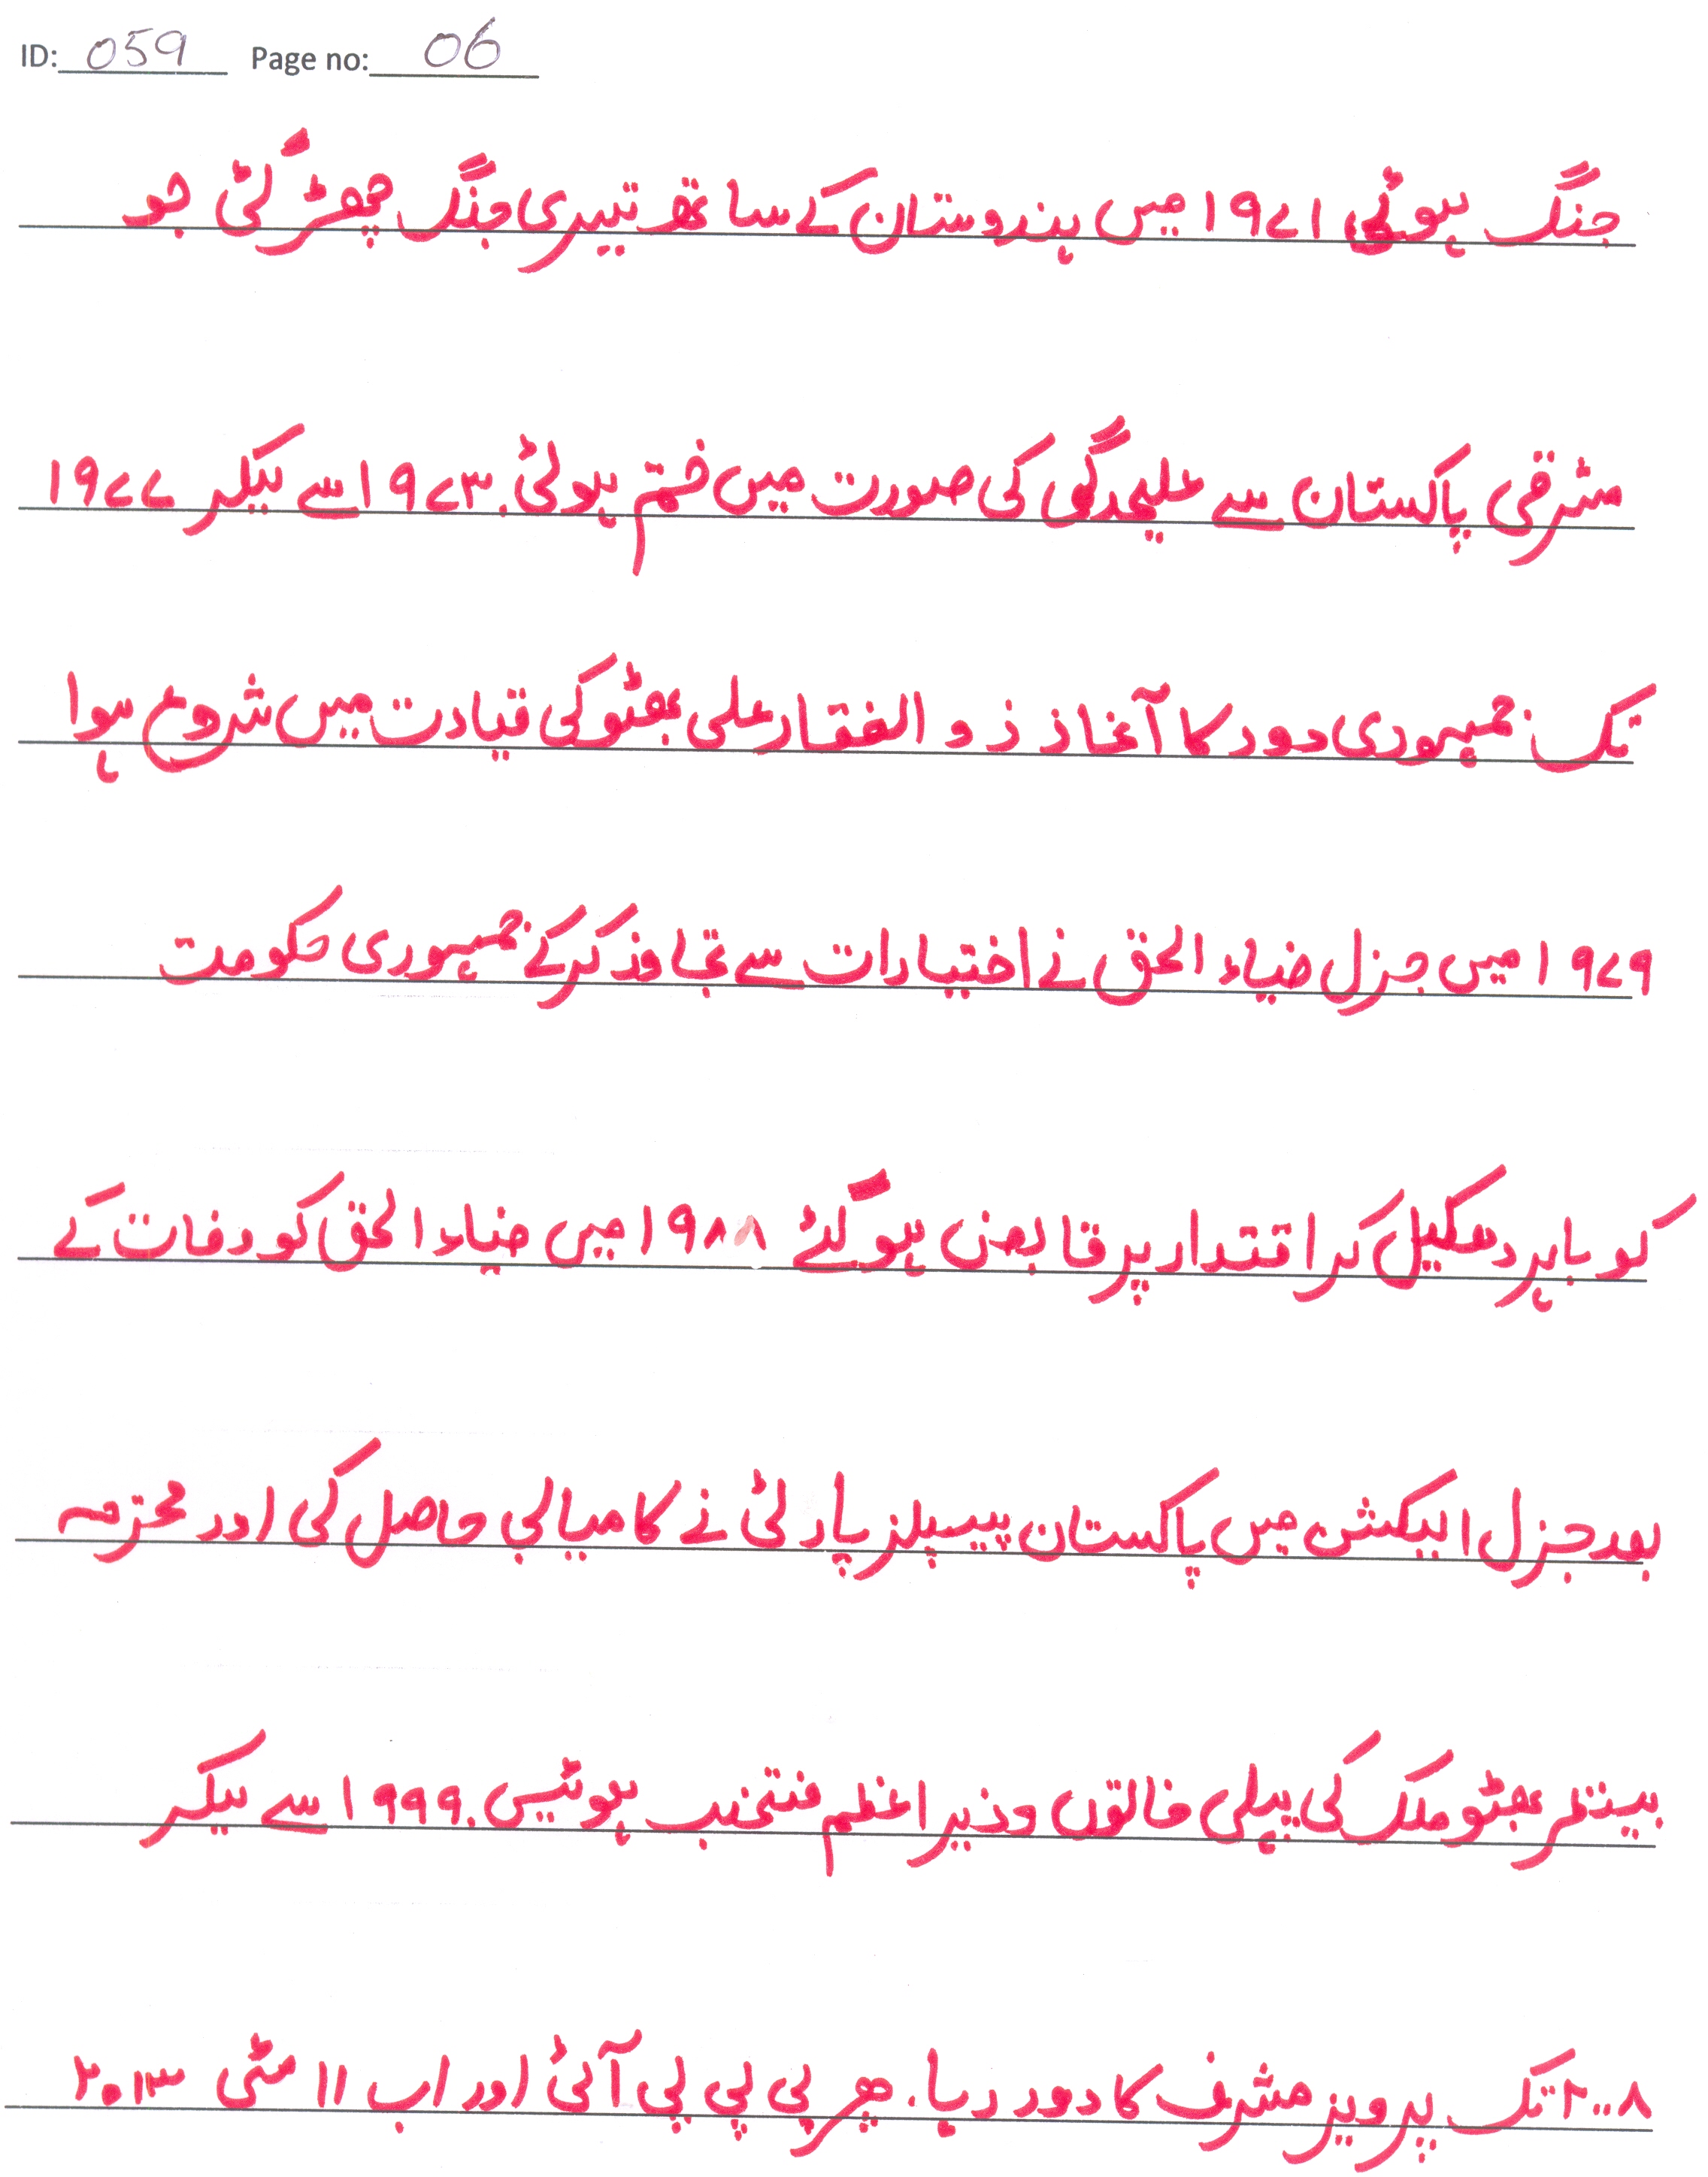 ID: 059 Page no: 06
جنگ ہوئی ۱۹۷۱ میں ہندوستان کے ساتھ تیسری جنگ چھڑ گئی جو
مشرقی پاکستان سے علیحدگی کی صورت میں ختم ہوئی. ۱۹۷۳ سے لیکر ۱۹۷۷
تک جمہوری دور کا آغاز ذو الفقار علی بھٹو کی قیادت میں شروع ہوا
۱۹۷۹ میں جنرل ضیاء الحق نے اختیارات سے تجاوز کر کے جمہوری حکومت
کو باہر دھکیل کر اقتدار پر قابض ہو گئے ۱۹۸۸ میں ضیاء الحق کو وفات کے
بعد جنرل الیکشن میں پاکستان پیپلز پارٹی نے کامیابی حاصل کی اور محترمہ
بینظر بھٹو ملک کی پہلی خاتون وزیر اعظم منتخب ہوئیں. ۱۹۹۹ سے لیکر
۲۰۰۸ تک پرویز مشرف کا دور رہا. پھر پی پی پی آئی اور اب ۱۱ مئی ۲۰۱۳